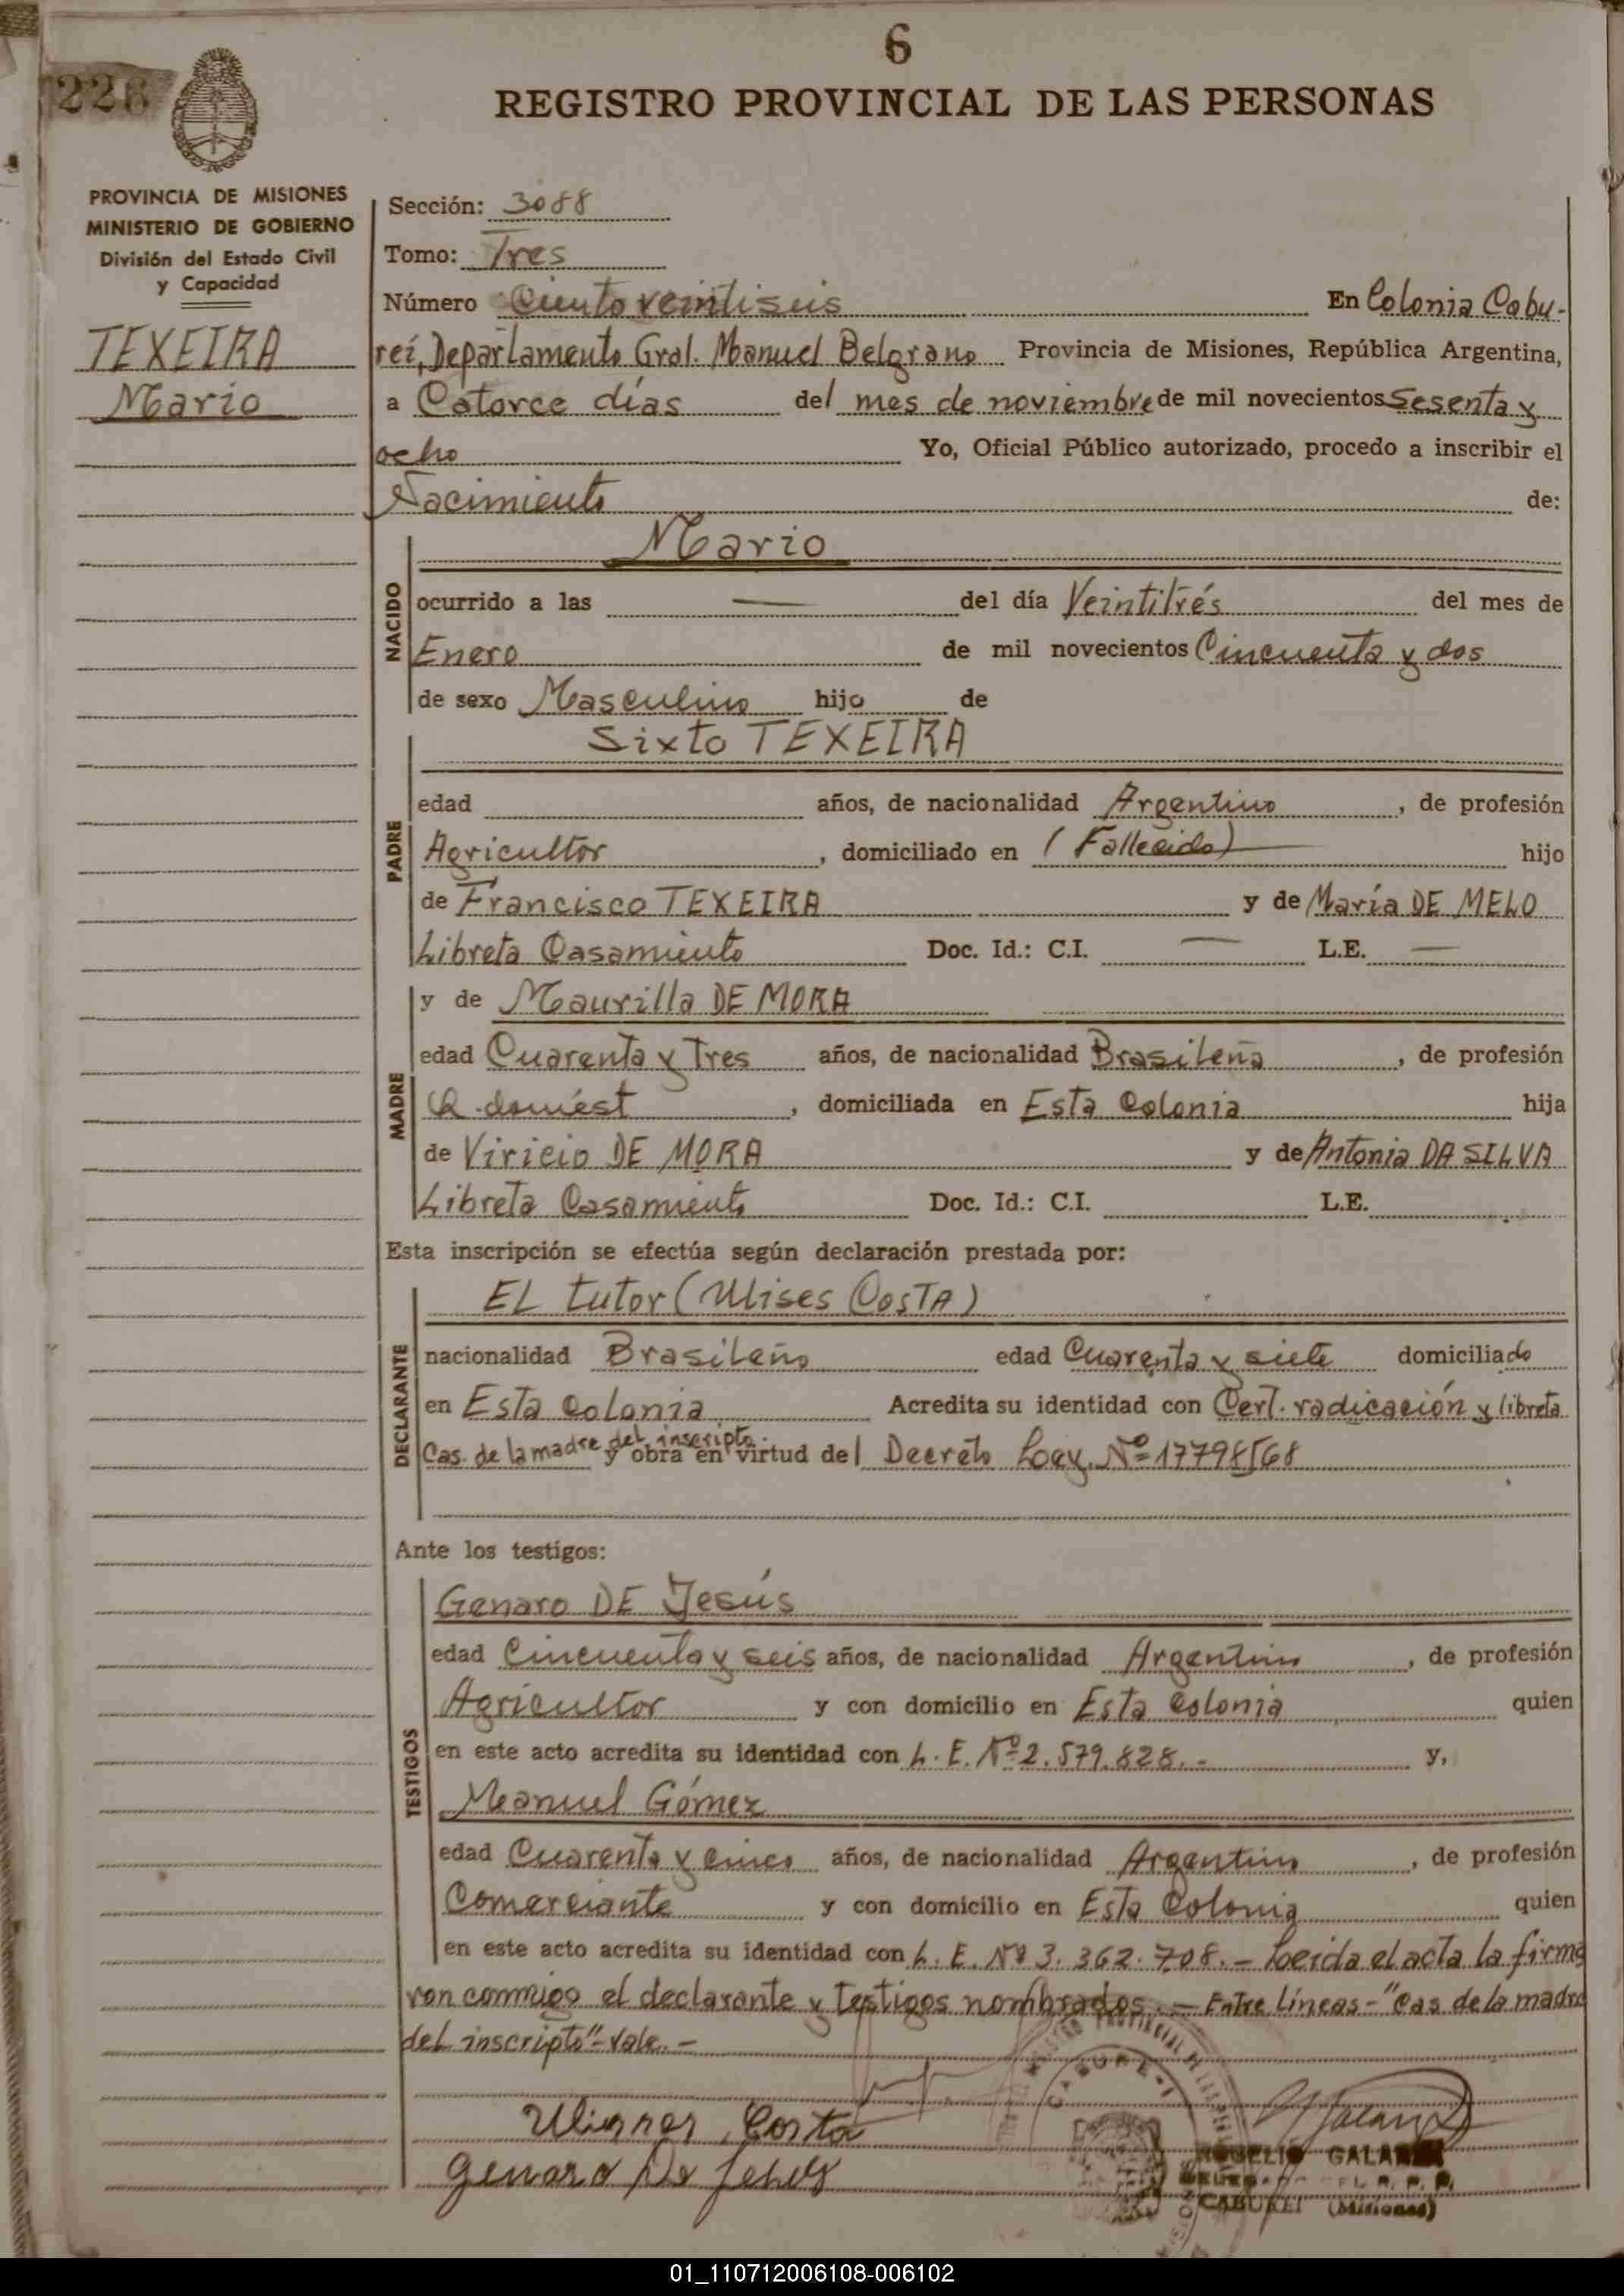 6
226
REGISTRO PROVINCIAL DE LAS PERSONAS
PROVINCIA DE MISIONES
MINISTERIO DE GOBIERNO
División del Estado Civil
y Capacidad
TEXEIRA
Mario
Sección: 3088
Tomo: Tres
Número Ciento veintiseis En Colonia Cabu-
reí, Departamento Gral. Manuel Belgrano Provincia de Misiones, República Argentina,
a Catorce días del mes de noviembre de mil novecientos Sesenta y
ocho Yo, Oficial Público autorizado, procedo a inscribir el
Nacimiento de:
NACIDO
Mario
ocurrido a las — del día Veintitrés del mes de
Enero de mil novecientos Cincuenta y dos
de sexo Masculino hijo de
PADRE
Sixto TEXEIRA
edad años, de nacionalidad Argentino, de profesión
Agricultor, domiciliado en (Fallecido) hijo
de Francisco TEXEIRA y de María DE MELO
Libreta Casamiento Doc. Id.: C.I. — L.E. —
MADRE
y de Maurilla DE MORA
edad Cuarenta y Tres años, de nacionalidad Brasileña, de profesión
Q. domést, domiciliada en Esta Colonia hija
de Viricio DE MORA y de Antonia DA SILVA
Libreta Casamiento Doc. Id.: C.I. L.E.
Esta inscripción se efectúa según declaración prestada por:
DECLARANTE
EL tutor (Ulises COSTA)
nacionalidad Brasileño edad Cuarenta y siete domiciliado
en Esta Colonia Acredita su identidad con Cert. radicación y libreta
Cas. de la madre del inscripto y obra en virtud del Decreto Ley. Nº 17798/68
Ante los testigos:
TESTIGOS
Genaro DE Jesús
edad Cincuenta y seis años, de nacionalidad Argentino, de profesión
Agricultor y con domicilio en Esta Colonia quien
en este acto acredita su identidad con L. E. Nº 2.579.828.- y,
Manuel Gómez
edad Cuarenta y cinco años, de nacionalidad Argentino, de profesión
Comerciante y con domicilio en Esta Colonia quien
en este acto acredita su identidad con L. E. Nº 3.362.708.- Leida el acta la firma
ron conmigo el declarante y testigos nombrados.- Entre líneas-"Cas de la madre
del inscripto"-Vale.-
CABURE-I
Costa
Genaro De Jesus
ROGELIO
CABUREI (Misiones)
01_110712006108-006102